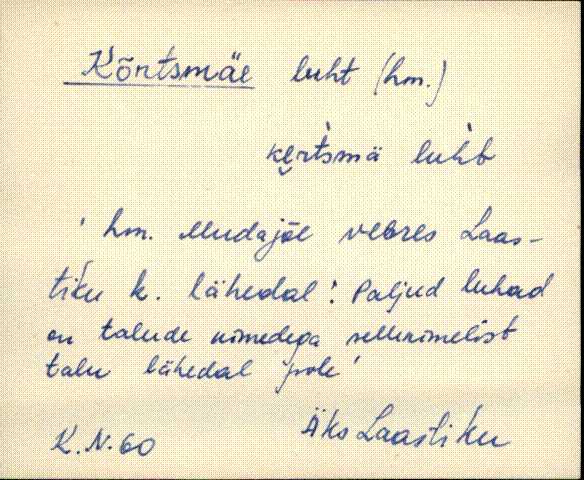 Kõrtsmäe luht (hm.)
kẹrt̀smä luh̀t
' hm. Mudajõe veeres Laas-
tiku k. lähedal. Paljud luhad
on talude nimedega sellenimelist
talu lähedal pole '
K.N. 60 Äks Laastiku